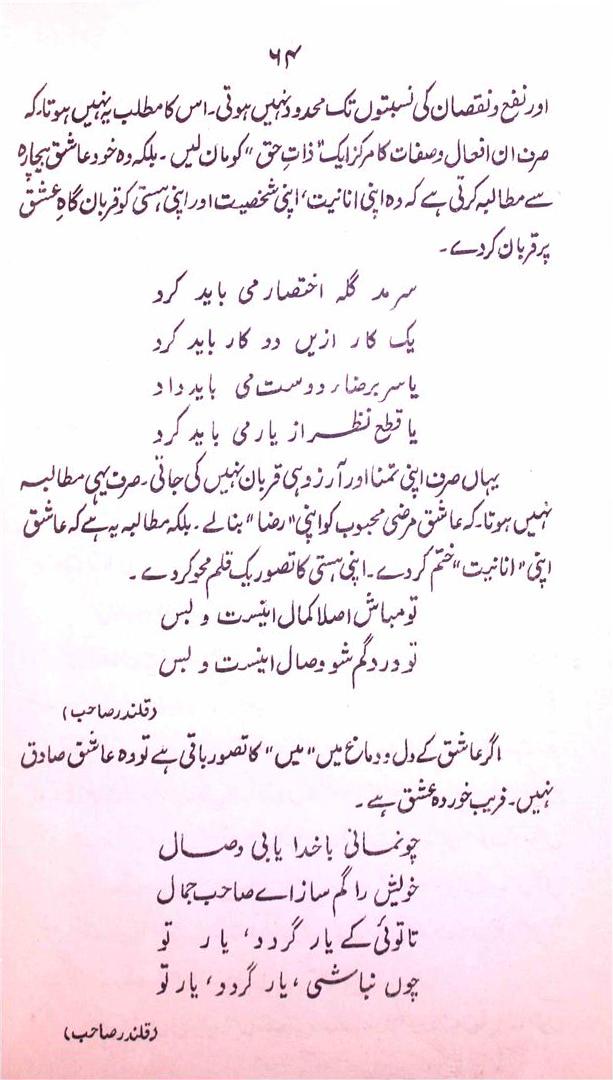 ۶۴
اور نفع و نقصان کی نسبتوں تک محدود نہیں ہوتی۔ اس کا مطلب یہ نہیں ہوتا۔ کہ
صرف ان افعال و صفات کا مرکز ایک "ذاتِ حق" کو مان لیں۔ بلکہ وہ خود عاشق بیچارہ
سے مطالبہ کرتی ہے کہ وہ اپنی انانیت، اپنی شخصیت اور اپنی ہستی کو قربان گاہِ عشق
پر قربان کر دے۔
سرمد گلہ اختصار می باید کرد
یک کار ازیں دو کار باید کرد
یا سر برضاء دوست می باید داد
یا قطع نظر از یار می باید کرد
یہاں صرف اپنی تمنا اور آرزو ہی قربان نہیں کی جاتی۔ صرف یہی مطالبہ
نہیں ہوتا۔ کہ عاشق مرضی محبوب کو اپنی "رضا" بنا لے۔ بلکہ مطالبہ یہ ہے کہ عاشق
اپنی "انانیت" ختم کر دے۔ اپنی ہستی کا تصور یک قلم محو کر دے۔
تو مباش اصلا کمال اینست و بس
تو درد گم شو وصال اینست و بس
(قلندر صاحب)
اگر عاشق کے دل و دماغ میں "میں" کا تصور باقی ہے تو وہ عاشق صادق
نہیں۔ فریب خوردہ عشق ہے۔
چو نمانی با خدا یابی وصال
خویش را گم ساز اے صاحب جمال
تا توئی کے یار گردد، یار تو
چوں نباشی، یار گردد، یار تو
(قلندر صاحب)